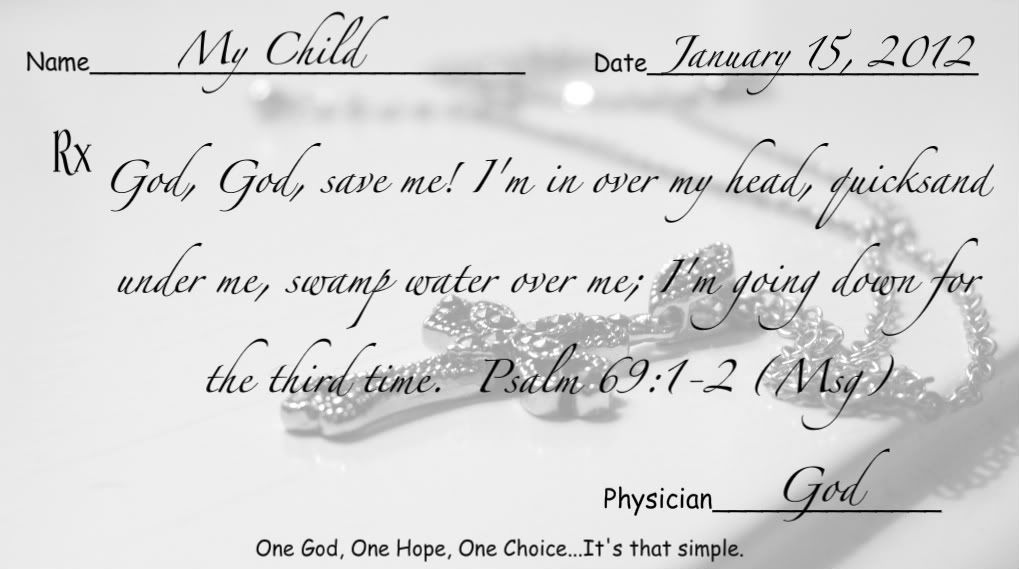 Name My Child Date January 15, 2012
Rx God, God, save me! I'm in over my head, quicksand
under me, swamp water over me; I'm going down for
the third time. Psalm 69:1-2 (Msg)
Physician God
One God, One Hope, One Choice...It's that simple.